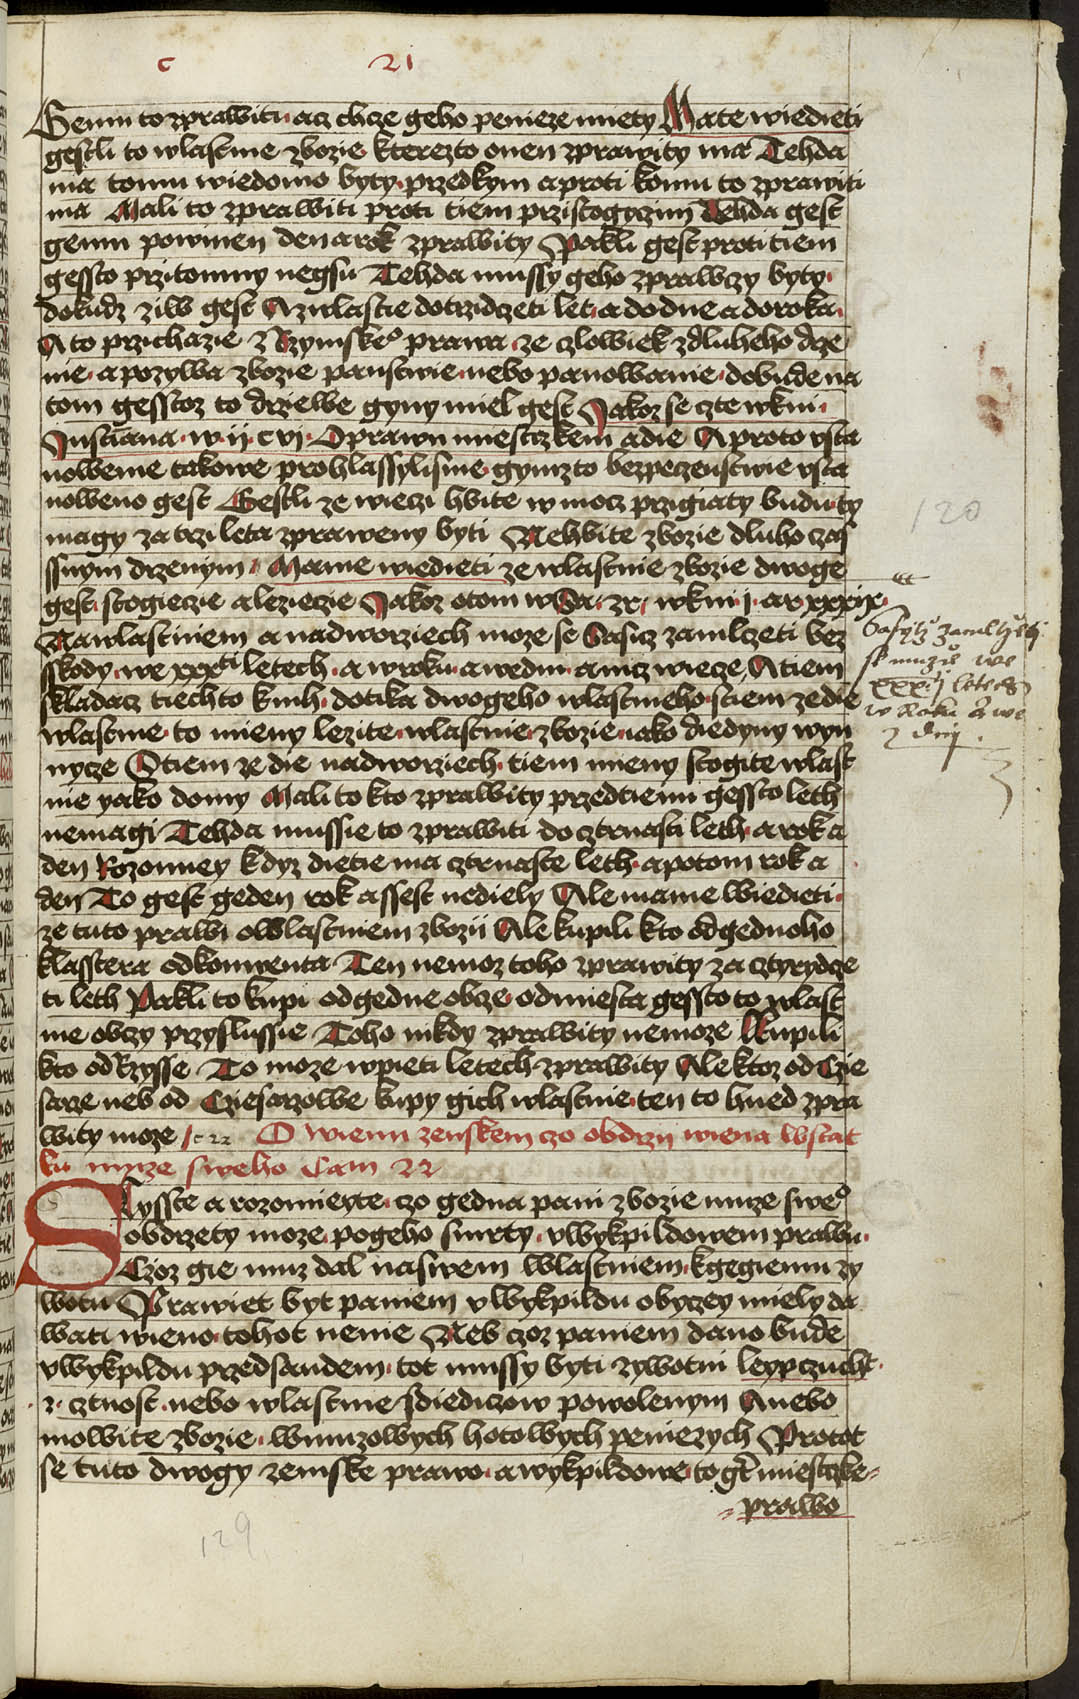 c 21
Gemu to zprawitu acz chcze geho penieze miety Mate wiedieti
gestli to wlastnie zbozie kterezto onen zprawity ma Tehda
ma tomu wiedomo byty przedkym a proti komu to zprawiti
ma Mali to zprawiti proti tiem przistogyczim Tehda gest
gemu powinen den a rok zprawity Pakli gest proti tiem
gessto przitomny negsu Tehda mussy geho zprawczy byty
dokudz ziw gest A zwlastie do trzidczeti let a do dne a do roka
A to przichazie z Rzymskeo prawa ze czlowiek z dluheho drze
nie a pozywa zbozie panstwie nebo panowanie dobude na
tom gesstoz to drziewe gyny miel gest Jakoz se czte w kni
Justiana w ij c vj O prawu miestczkem a die A proto vsta
nowenie takowe prohlassylisme gymzto bezpeczenstwie vsta
noweno gest Gestli ze wieczi hbite w mocz przigiaty budu ty
magy za trzi leta zpraweny byti Nehbite zbozie dluho czas
ssnym drzenym Mame wiedieti ze wlastnie zbozie dwoge
gest stogiczie a leziczie Jakoz o tom w Sa zr w kni j ar xxxix
Na wlastniem a na dworziech moze se Sasicz zamlczeti bez
sskody we xxxti letech a w roku a we dni a nicz wiecze A tiem
skladacz tiechto knih dotika dwogeho wlastnieho s tiem ze die
wlastnie to mieny lezite wlastnie zbozie iako diediny wyn
nycze O tiem ze die na dworziech tiem mieny stogite wlast
nie yako domy Mali to kto zprawity przed tiemi gessto leth
nemagi Tehda mussie to zprawiti do cztrnasti leth a rok a
den Rozomiey kdyz dietie ma cztrnaste leth a potom rok a
den To gest geden rok a ssest nediely Ale mame wiedieti
ze tuto prawi o wlastniem zbozii Ale kupili kto od gednoho
klasstera od konwenta Ten nemoz toho zprawity za cztyrydcze
ti leth Pakli to kupi od gedne obcze od miesta gessto to wlast
nie obczy przyslussie Toho nikdy zprawity nemoze Kupili
kto od Rzysse To moze w pieti letech zprawity Ale ktoz od Czie
sarze neb od Cziesarzowe kupy gich wlastnie ten to hned zpra
wity moze c 22 O wienu zenskem czo obdrzy wiena w stat
ku muze sweho Cam 22
Slyssте a rozomieyte czo gedna pani zbozie muze sweo
obdrzety moze po geho smrty v wykpildowem prawu
Czoz gie muz dal na swem wlastniem k gegiemu zy
wotu Prawiet byt paniem v wykpildu obyczey miely da
wati wieno tohot nenie Neb czoz paniem dano bude
v wykpildu przed saudem tot mussy byti zywotni leypczucht
z cztnost nebo wlastnie s diediczow powolenym A nebo
mowite zbozie w muzowych hotowych peniezych Protot
se tuto dwogy zemske prawo a wykpildowe to gt miestczke
prawo
Sasytz zamltzeti
sse muzu we
xxxj letech
w Roku a we
z dny
120
129